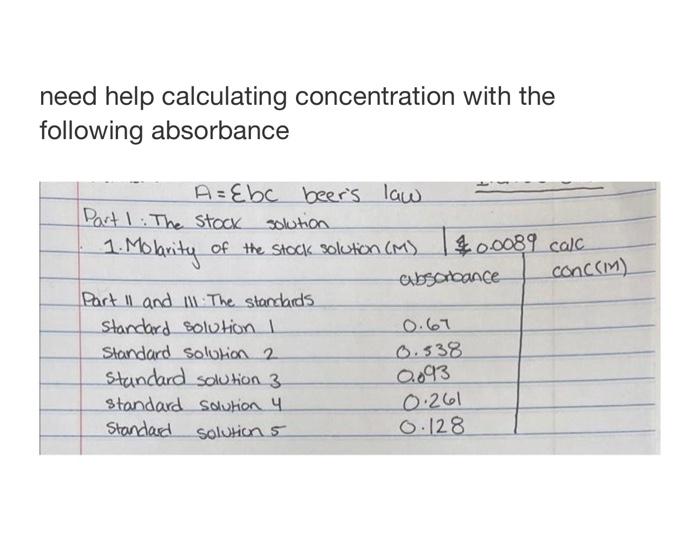 need help calculating concentration with the
following absorbance
A = Ɛbc beer's law
Part 1: The stock solution
1. Molarity of the stock solution (M) 0.0089 calc
absorbance conc(M)
Part II and III: The standards
Standard solution 1 0.67
Standard solution 2 0.538
Standard solution 3
Standard solution 4 0.261
Standard solution 5 0.128